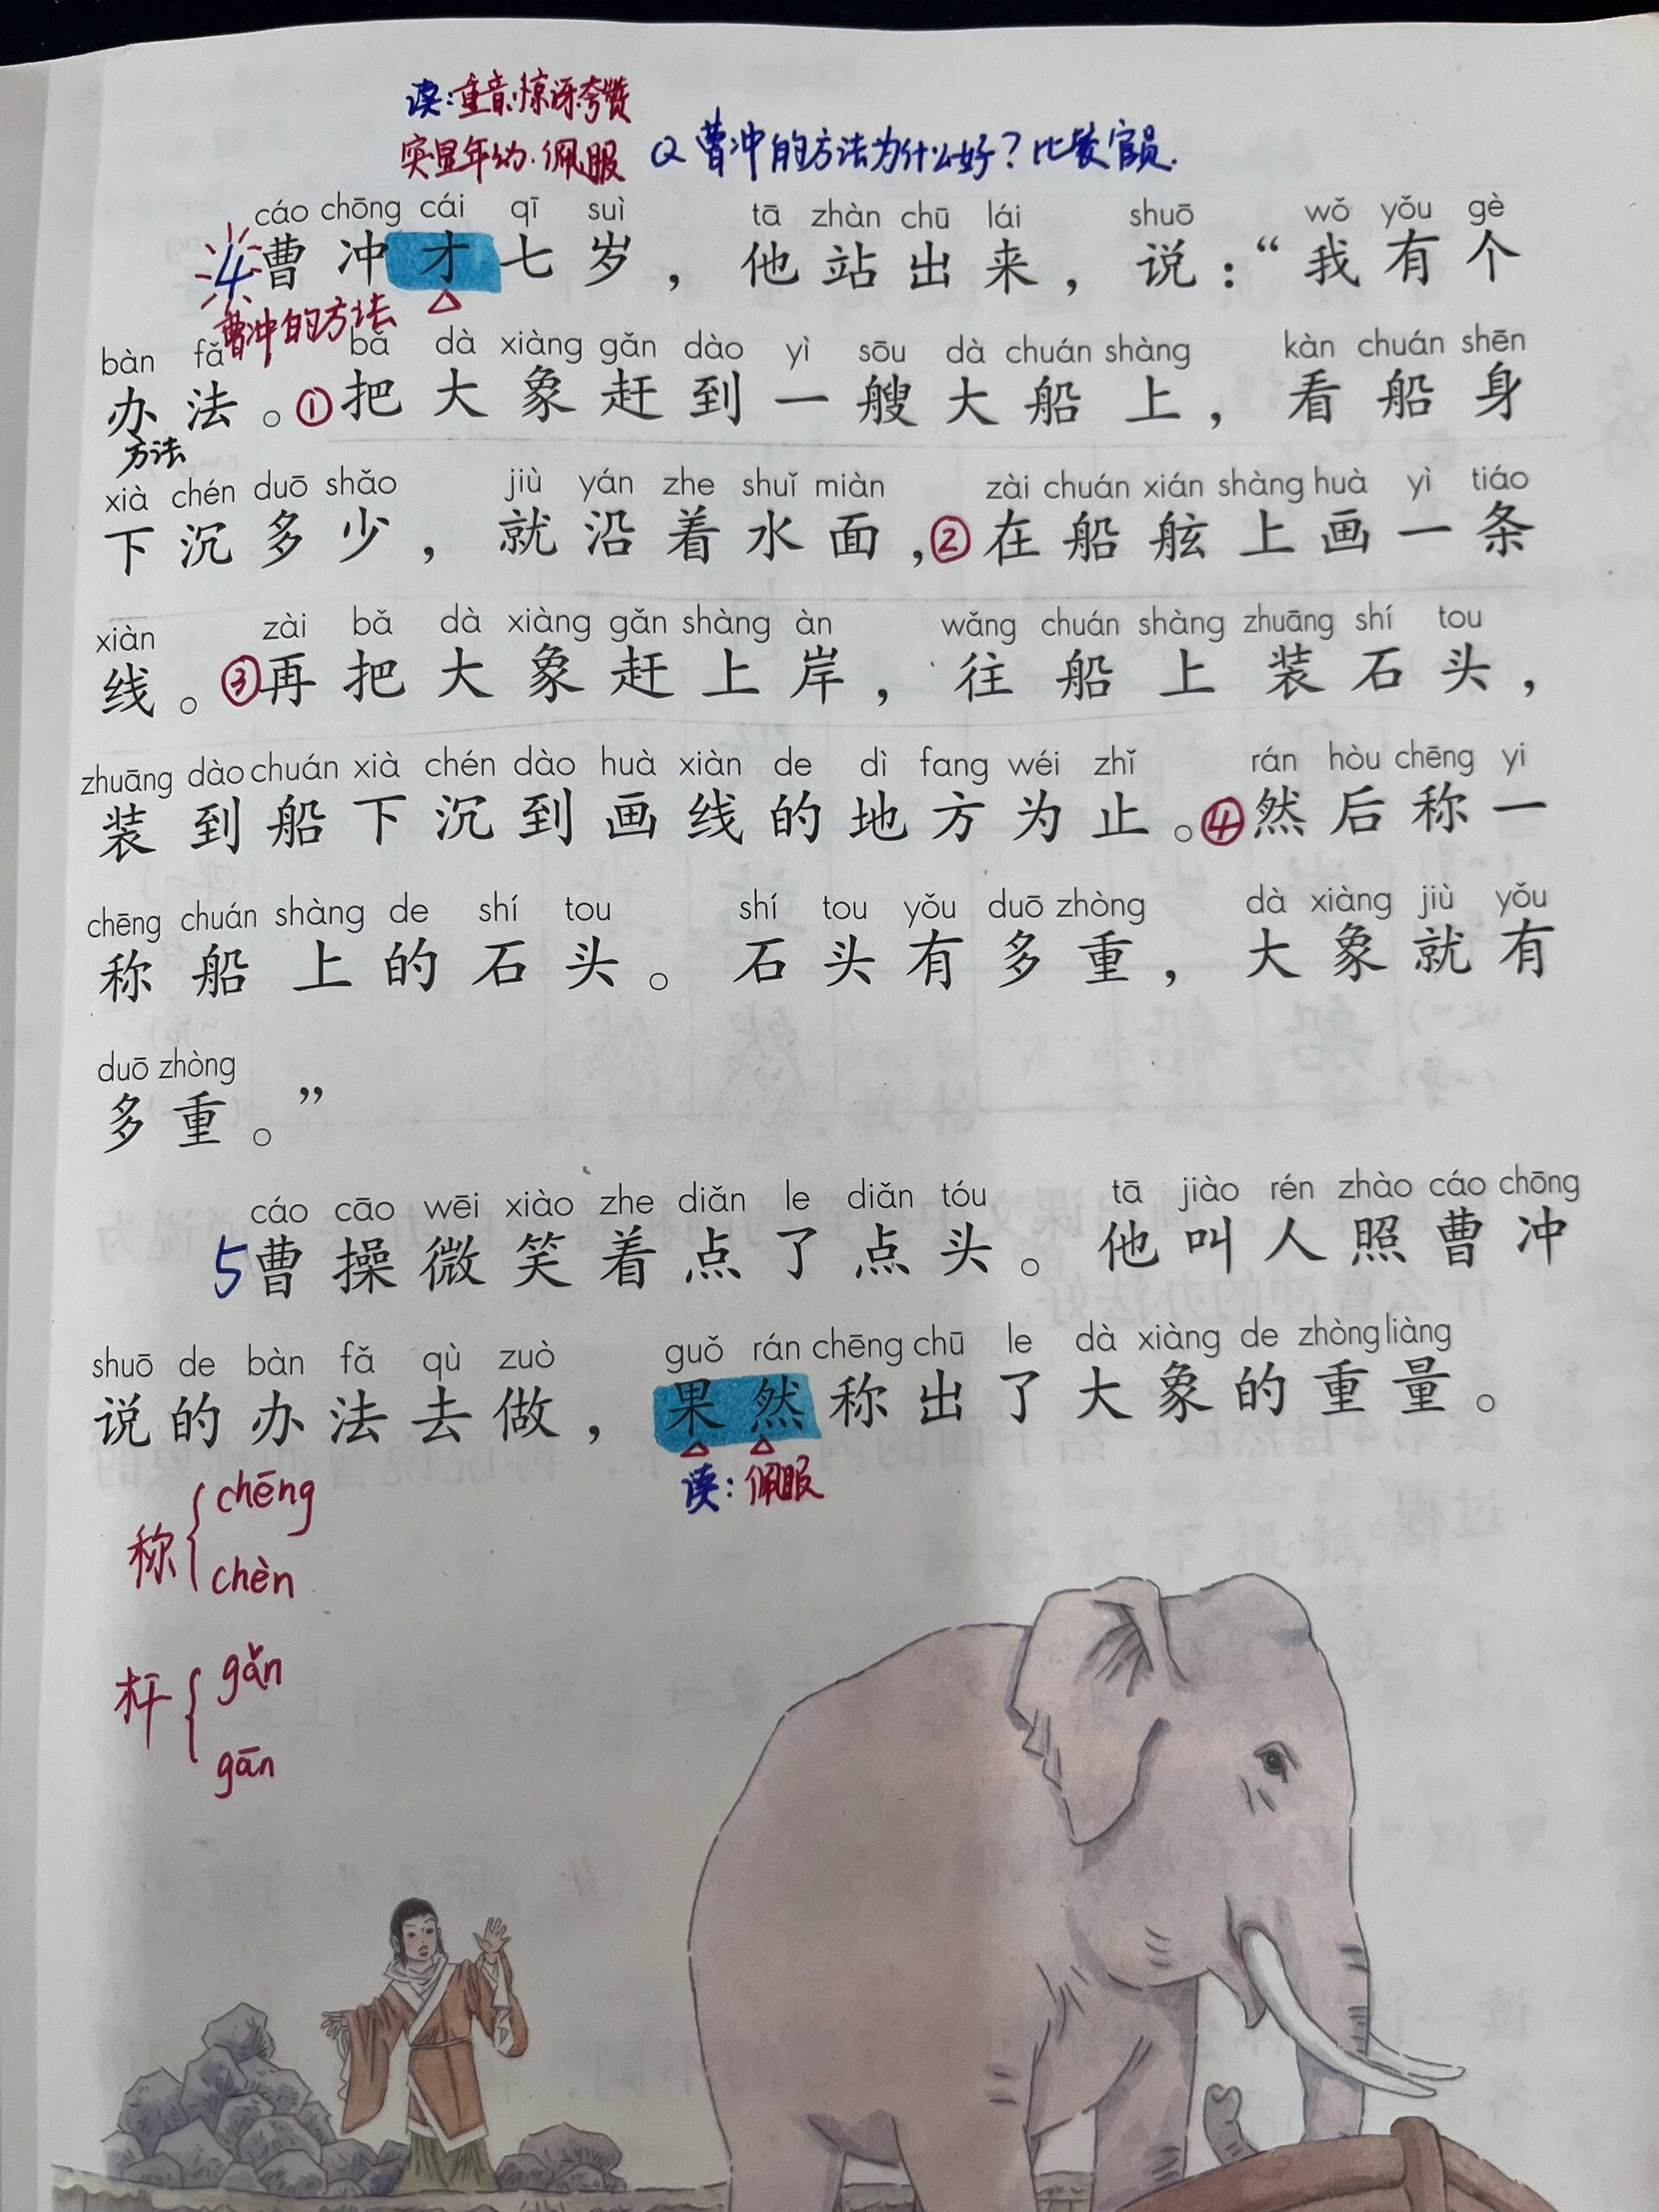 读：重音、惊讶、夸赞
突显年幼、佩服 Q 曹冲的方法为什么好？比较官员.
cáo chōng cái qī suì tā zhàn chū lái shuō wǒ yǒu gè
4曹冲才七岁，他站出来，说：“我有个
曹冲的方法
bàn fǎ bǎ dà xiàng gǎn dào yì sōu dà chuán shàng kàn chuán shēn
办法。①把大象赶到一艘大船上，看船身
方法
xià chén duō shǎo jiù yán zhe shuǐ miàn zài chuán xián shàng huà yì tiáo
下沉多少，就沿着水面，②在船舷上画一条
xiàn zài bǎ dà xiàng gǎn shàng àn wǎng chuán shàng zhuāng shí tou
线。③再把大象赶上岸，往船上装石头，
zhuāng dào chuán xià chén dào huà xiàn de dì fang wéi zhǐ rán hòu chēng yi
装到船下沉到画线的地方为止。④然后称一
chēng chuán shàng de shí tou shí tou yǒu duō zhòng dà xiàng jiù yǒu
称船上的石头。石头有多重，大象就有
duō zhòng
多重。”
cáo cāo wēi xiào zhe diǎn le diǎn tóu tā jiào rén zhào cáo chōng
5曹操微笑着点了点头。他叫人照曹冲
shuō de bàn fǎ qù zuò guǒ rán chēng chū le dà xiàng de zhòng liàng
说的办法去做，果然称出了大象的重量。
读：佩服
称{ chēng
chèn
杆{ gǎn
gān